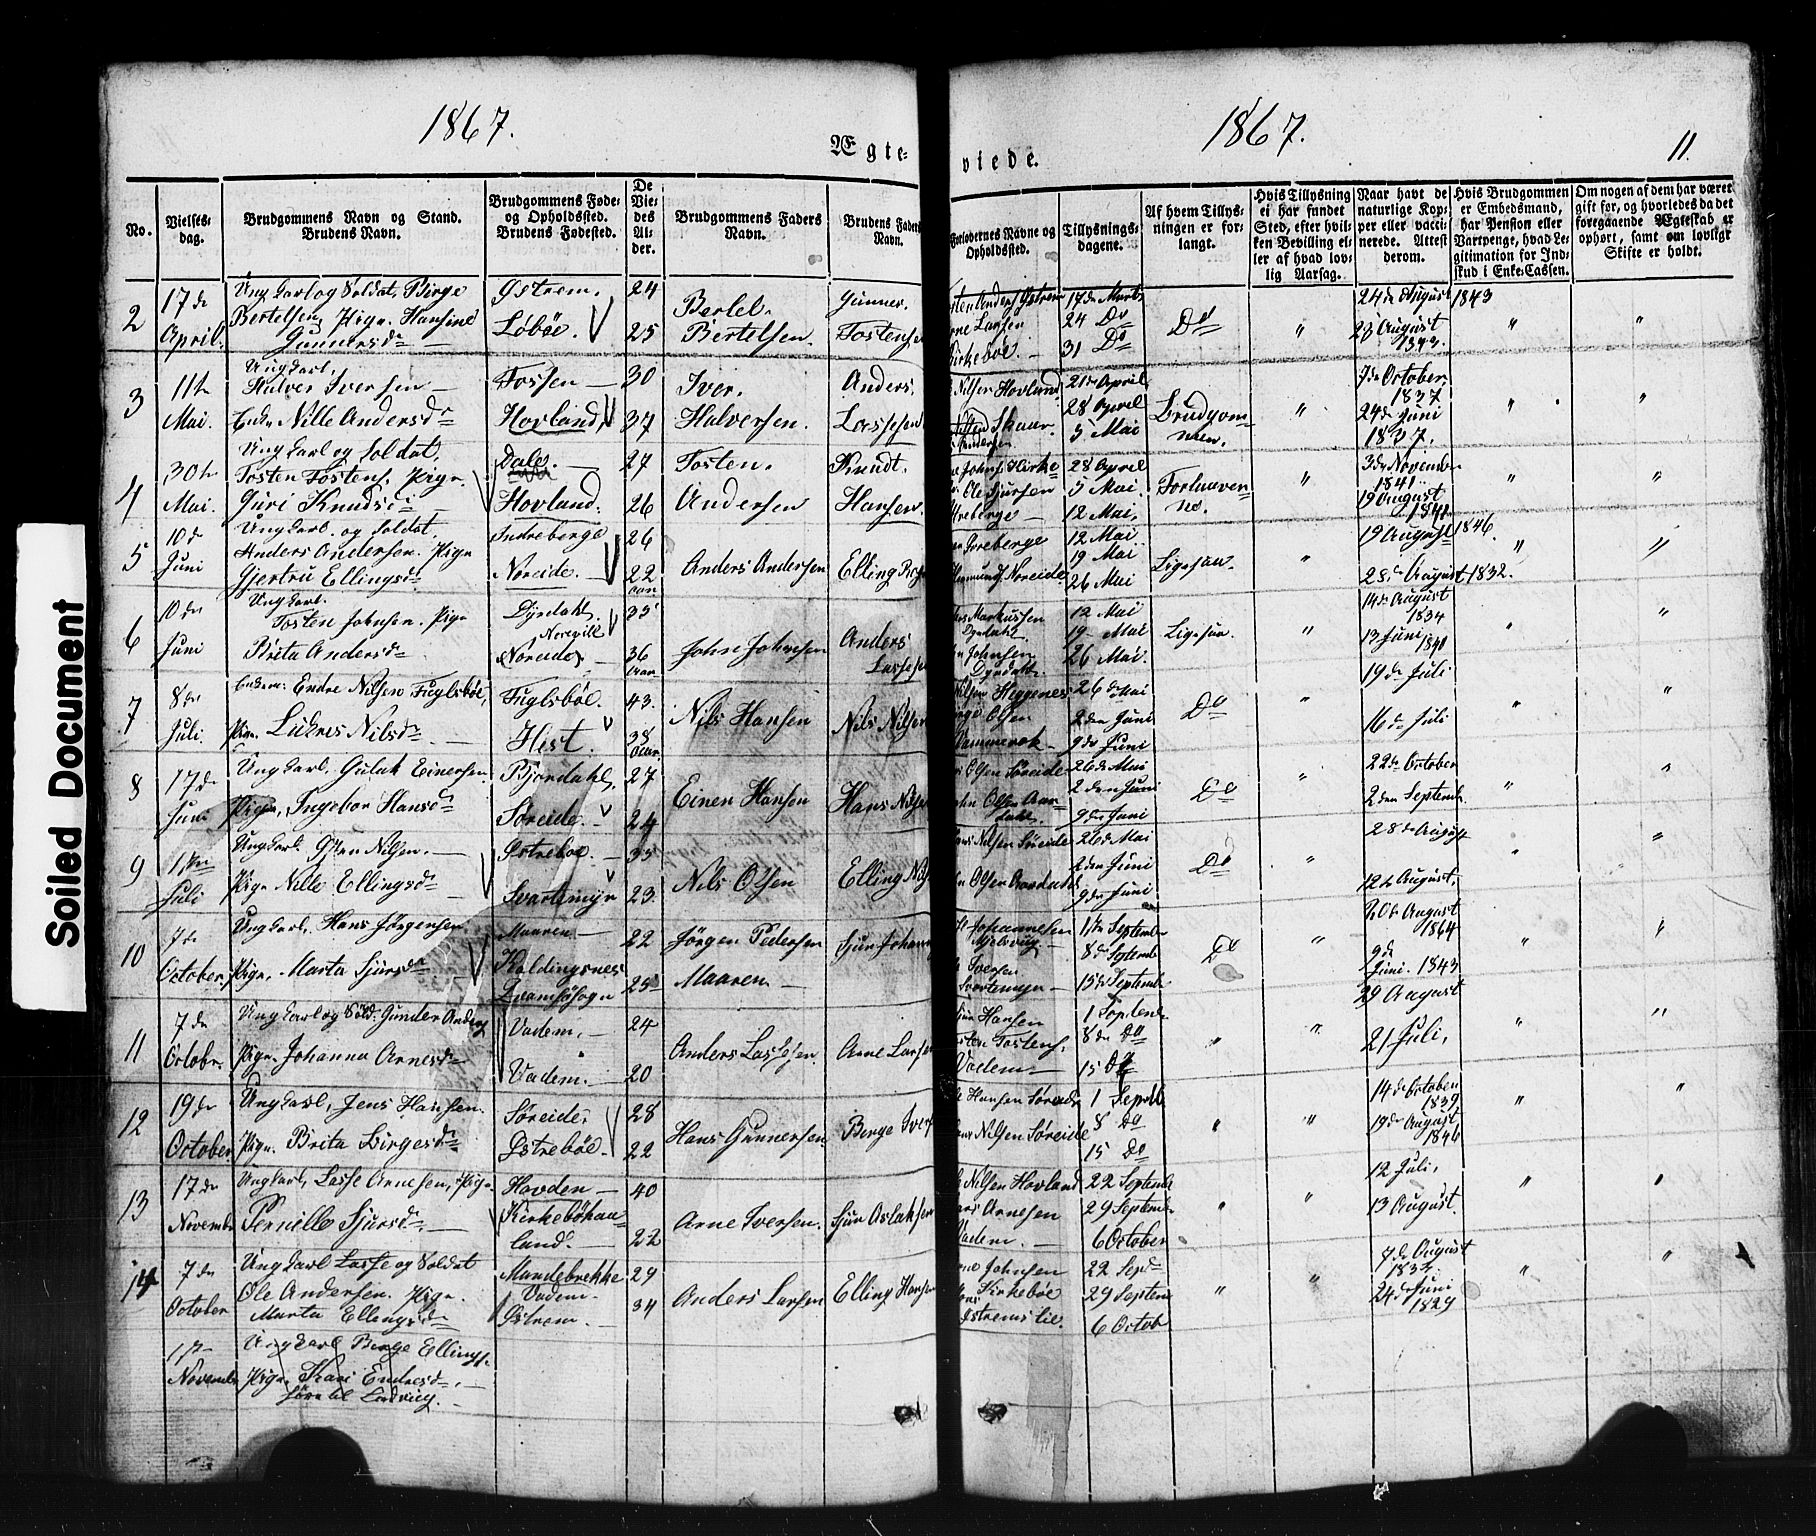 1867.
Ægte-
viede.
1867.
11.
Soiled Document
No.
Vielses-
dag.
Brudgommens Navn og Stand.
Brudens Navn.
Brudgommens Føde-
og Opholdssted.
Brudens Fødested.
De
Vie-
des
Al-
der.
Brudgommens Faders
Navn.
Brudens Faders
Navn.
Forlovernes Navne og
Opholdssted.
Tillysnings-
dagene.
Af hvem Tillys-
ningen er for-
langt.
Hvis Tillysning
ei har fundet
Sted, efter hvil-
ken Bevilling el-
ler af hvad lov-
lig Aarsag.
Naar havt de
naturlige Kop-
per eller vacci-
nerede. Attest
derom.
Hvis Brudgommen
er Embedsmand,
har Pension eller
Vartpenge, hvad Le-
gitimation for Ind-
skud i Enke-Cassen.
Om nogen af dem har været
gift før, og hvorledes da det
foregaaende Ægteskab er
ophørt, samt om lovligt
Skifte er holdt.
2
17de
April.
Ung Karl og Soldat, Birge
Bertelsen, Pign. Hansine
Gunnersdr
Østrem.
Løbøe.
24
25
Bertel
Bertelsen.
Gunner
Tostensen
Anders Østrem
Arne Larsen
Kirkebøe.
17de Marts
24 Do
31 Do
Do
24de August 1843
25 August
1843.
3
11te
Mai.
Ung Karl,
Halver Iversen
Enke Nille Andersdr
Fossen
Hovland,
30
37
Iver.
Halversen.
Anders
Lassesen
Nilsen Hovland
Skaar
Andersen
21de April
28 April
5 Mai
Brudgom-
men.
7de October,
1837
24de Juni
1837.
4
30te
Mai.
Ung Karl og Soldat,
Tosten Tostens. Pign.
Guri Knudsdr
Dale.
Hovland.
27
26
Tosten.
Andersen
Knudt.
Hansen.
Ole Sjursen
28 April
5 Mai.
12 Mai,
Forlover-
ne.
3de Novembr
1841.
19 August
1841
5
10de
Juni
Ung Karl og Soldat,
Anders Andersen. Pign
Gjertru Ellingsdr
Indreberge
Noreide.
26
22
Anders Andersen
Elling
Noreide
12 Mai.
19 Mai
26 Mai
Ligesaa.
19 August 1846.
28de August 1832.
6
10de
Juni
Ung Karl.
Tosten Johnsen. Pign
Brita Andersdr
Dyrdahl,
Noreide.
35
36
John Johnsen
Anders
Lassesen
Markussen
Dyrdahl
Johnsen
Dyrdahl
12 Mai
19 Mai
26 Mai.
Ligesaa.
14de August
1834
13 Juni 1840
7
8de
Juli.
Enkem: Endre Nilsen Fuglsbøe,
Pign. Nilsdr
Fuglsbøe.
Hest.
43.
38
Nils Hansen
Nils Nilsen
Nilsen Heggenes
Olsen
26de Mai
2den Juni
9de Juni
Do
19de Juli
16de Juli
8
17de
Juni
Ung Karl, Gulak Einersen.
Pign, Ingebor Hansdr
Bjordahl,
Søreide.
27
24
Einer Hansen
Hans Nilsen
Olsen Søreide
Olsen Aar-
dahl.
26de Mai
2den Juni
9de Juni
Do
22de October
2den Septembr
9
1ste
Juli
Ung Karl. Nilsen.
Pign Nille Ellingsdr
Østrebøe.
Svartemyr
35
23.
Nils Olsen
Elling
Nilsen Søreide
Olsen Aardahl
26de Mai
2den Juni
9de Juni
Do
28de August
12te August,
10
7de
October,
Ung Karl, Hans Jørgensen
Pign, Marta Sjursdr
Maaren
Koldingsnes
22
25
Jørgen Pedersen
Maaren
Sjur Johann
Johannesen
Iversen
Svartemyr
1ste Septembr
8de Septemb
15de Septembr
Do
20de August
1864
9de
Juni. 1843
11
7de
Octobr.
Ung Karl og Sold. Gunder Anders
Pign. Johanna Arnesdr
Vadem,
Vadem.
24
20
Anders Lassesen.
Arne Larsen
Hansen
Tostens.
Vadem
1 Septemb
8de Do
15 Do
29 August
21 Juli,
12
19de
October.
Ung Karl, Jens Hansen.
Pign. Brita Birgesdr
Søreide,
Østrebøe.
28
22
Hans Gunnersen.
Berge Ivers
Hansen Søreide
Nilsen Søreide
1 Septb
8 Do
15 Do
14de October
1839
19de August
1846
13
17de
Novembr
Ung Karl, Lasse Arnesen, Pign.
Pernille Sjursdr
Havden
Kirkebøhau-
land.
40
22
Arne Iversen.
Sjur Aslaksen
Nilsen Hovland
Arnesen
Vadem.
22 Septembr
29 Septembr
6 October
12 Juli,
13 August.
14
7de
October
Ung Karl Lasse og Soldat
Ole Andersen. Pign.
Marta Ellingsdr
Mandebrekke
Vadem.
Østrem.
29
34
Anders Larsen
Elling Hansen
Johnsen
Kirkebøe
22 Sept
29 Septem
6 Octob
7de August
1837
24de Juni
1829
Novembr
Ung Karl Berge Ellings.
Pign. Kari Endresdr.